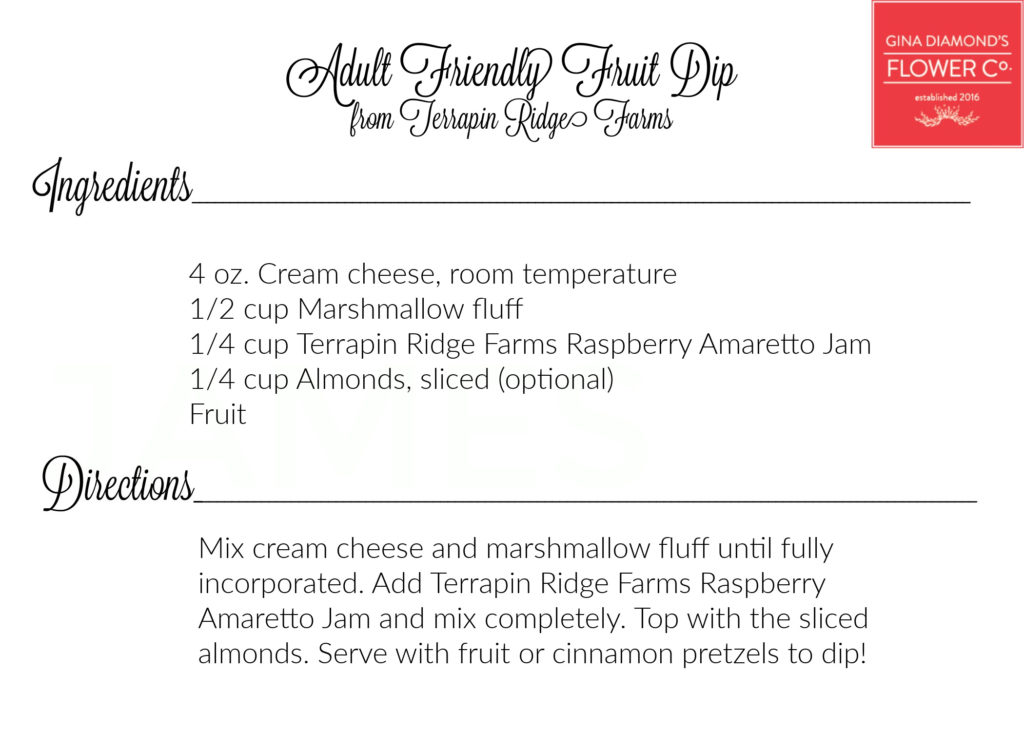 GINA DIAMOND'S
FLOWER Co.
established 2016
Adult Friendly Fruit Dip
from Terrapin Ridge Farms
Ingredients
4 oz. Cream cheese, room temperature
1/2 cup Marshmallow fluff
1/4 cup Terrapin Ridge Farms Raspberry Amaretto Jam
1/4 cup Almonds, sliced (optional)
Fruit
Directions
Mix cream cheese and marshmallow fluff until fully
incorporated. Add Terrapin Ridge Farms Raspberry
Amaretto Jam and mix completely. Top with the sliced
almonds. Serve with fruit or cinnamon pretzels to dip!